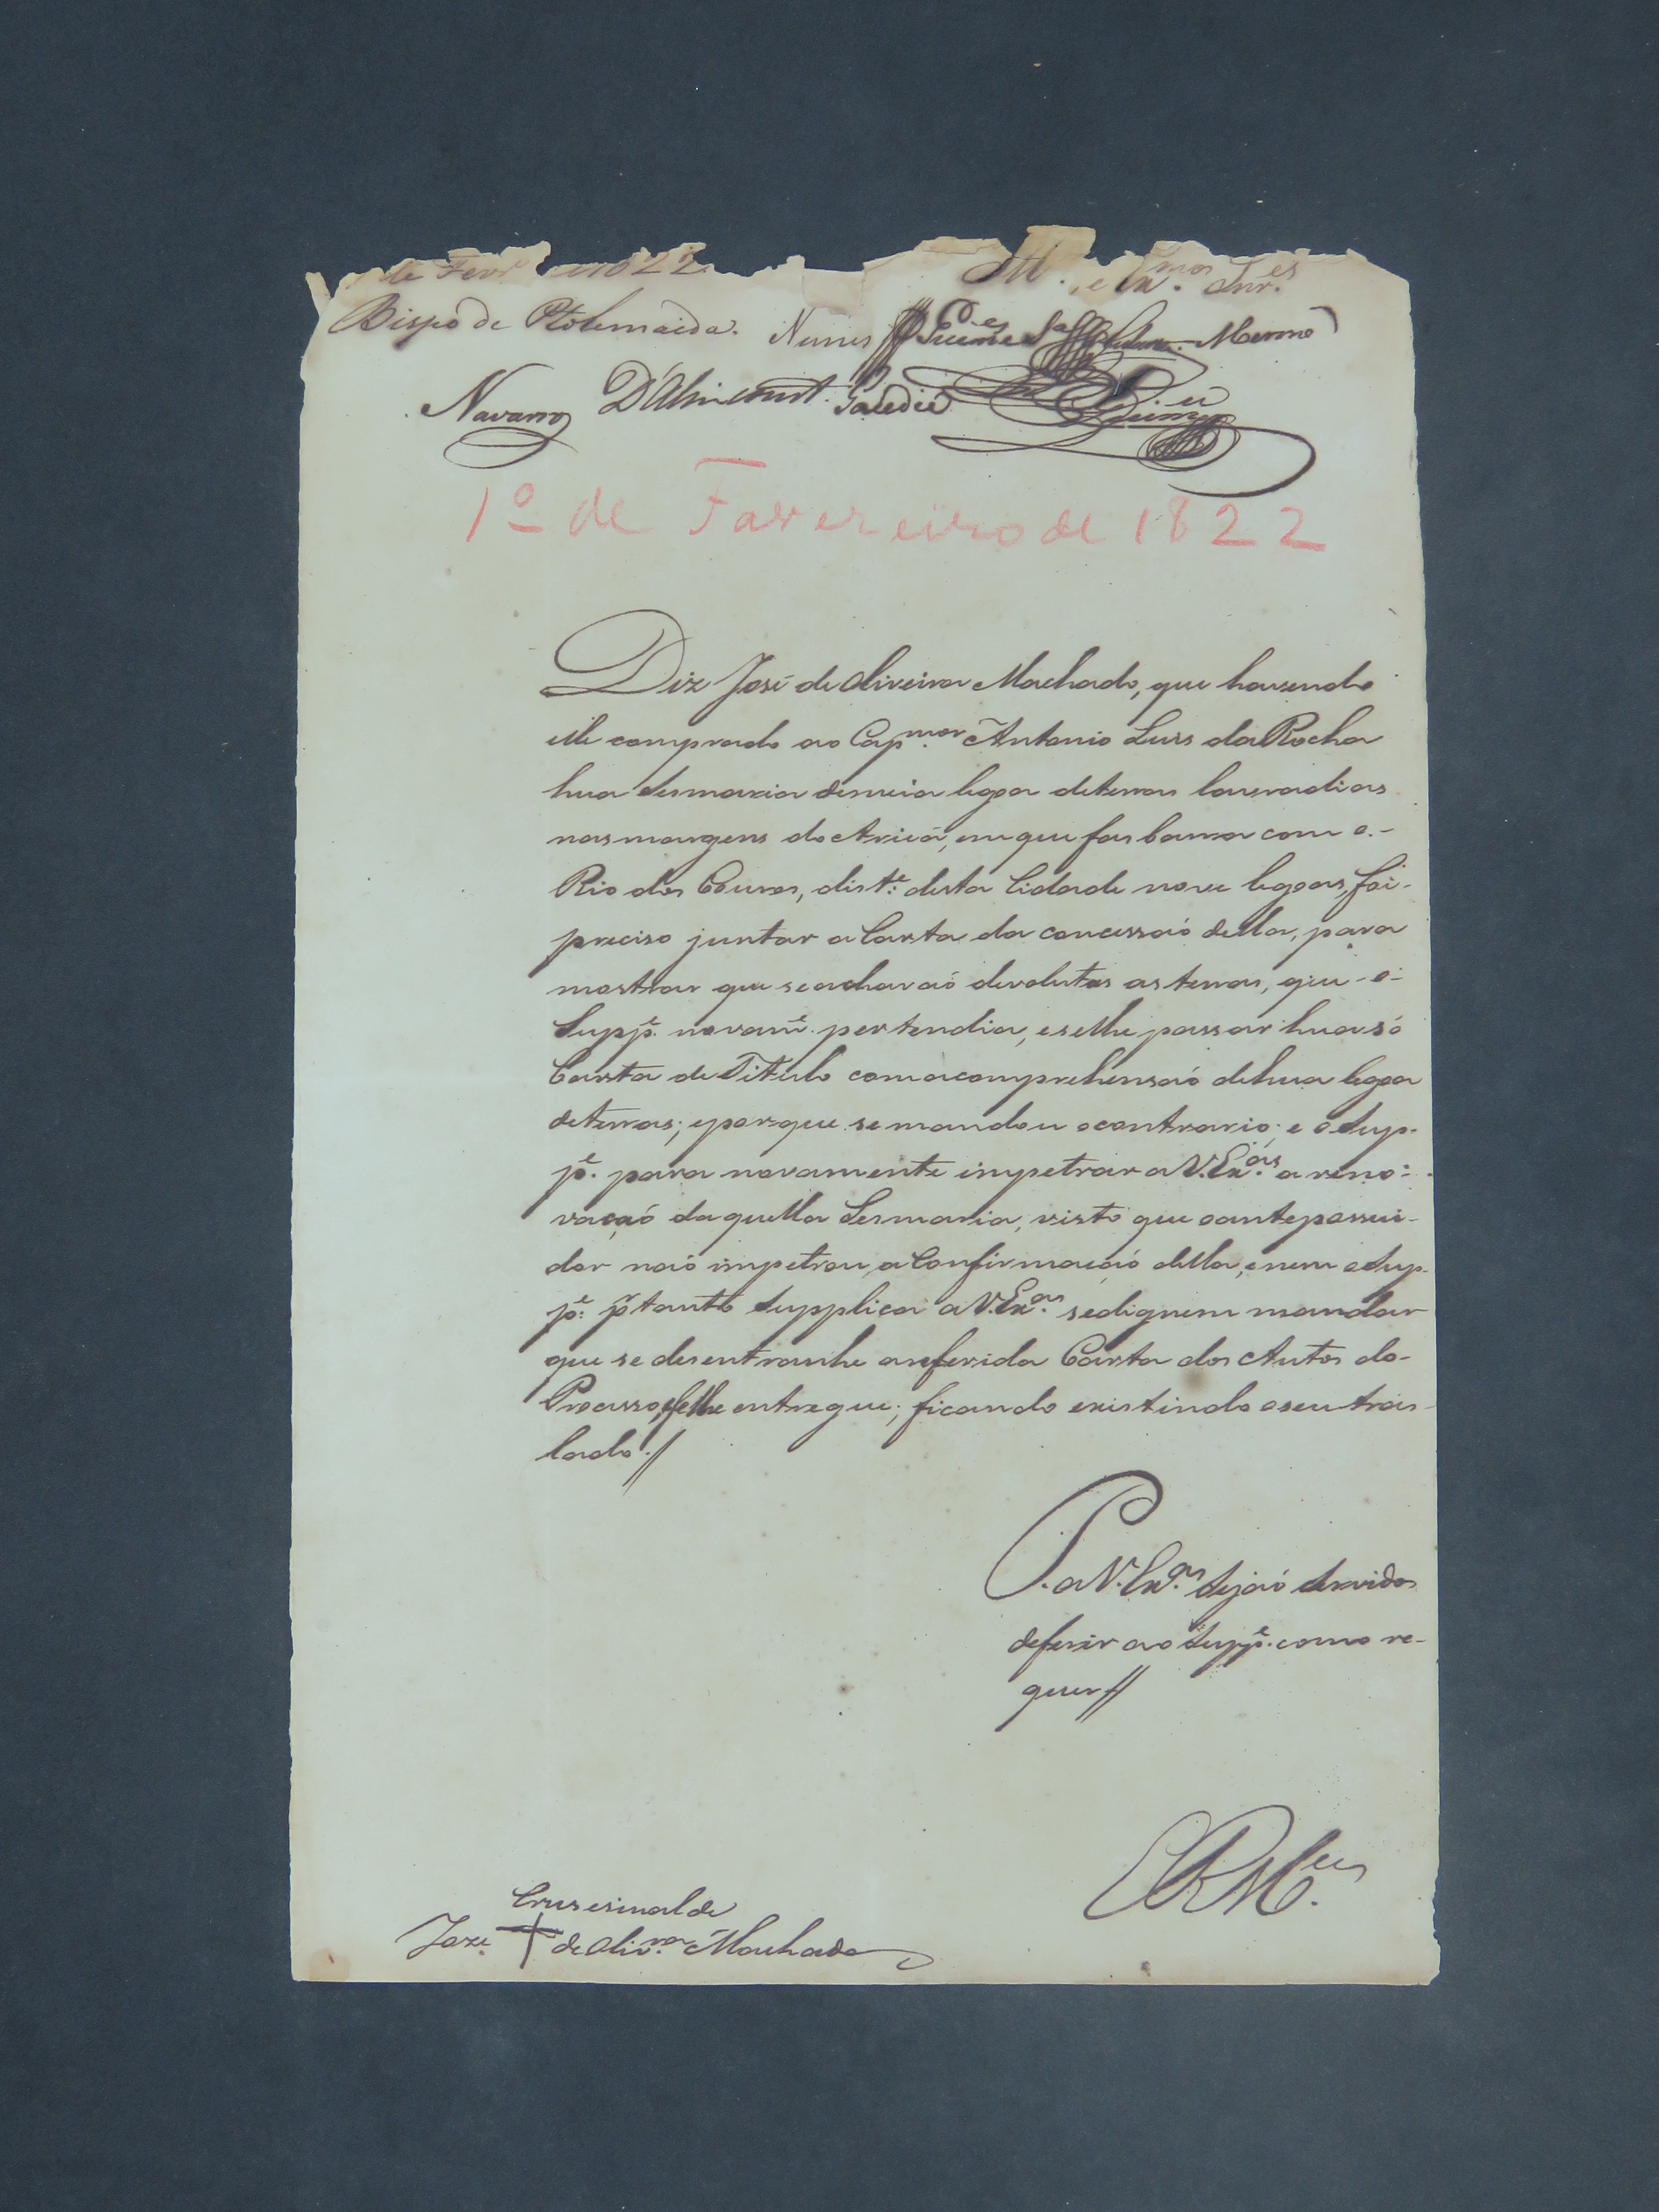 de Fevr 1822
Ill. e Ex.mos Snr.es
Bispo de Ptolemaida. Nunes
Navarro D'Alincourt. Gaudie
1º de Favereiro de 1822
Diz José de Oliveira Machado, que havendo
elle comprado ao Cap.mor Antonio Luis da Rocha
hua Sesmaria de meia legoa de terras lavradias
nas margens do Aricá, em que fas barra com o-
Rio dos Couros, dist.e desta Cidade nove legoas, foi-
preciso juntar a Carta da concessaó della, para
mostrar que se achavaó devolutas as terras, que o-
Supp.e novam.e pertendia, e se lhe passar hua só
Carta de Titulo com a comprehensaó de hua legoa
de terras; e porque se mandou o contrario; e o Sup-
p.e para novamente impetrar a V. Ex.as a reno-
vaçaó daquella Sesmaria, visto que o antepossui-
dor naó impetrou a Confirmaçaó della, e nem o Sup-
p.e pr tanto Supplica a V. Ex.as se dignem mandar
que se desentranhe a referida Carta dos Autos do-
Processo, e se lhe entregue; ficando existindo o seu tras-
lado.//
P. a V. Ex.as Sejaó Servidos
deferir ao Supp.e como re-
quer//
E R M.ce
Crus e sinal de
Joze + de Oliv.ra Machado